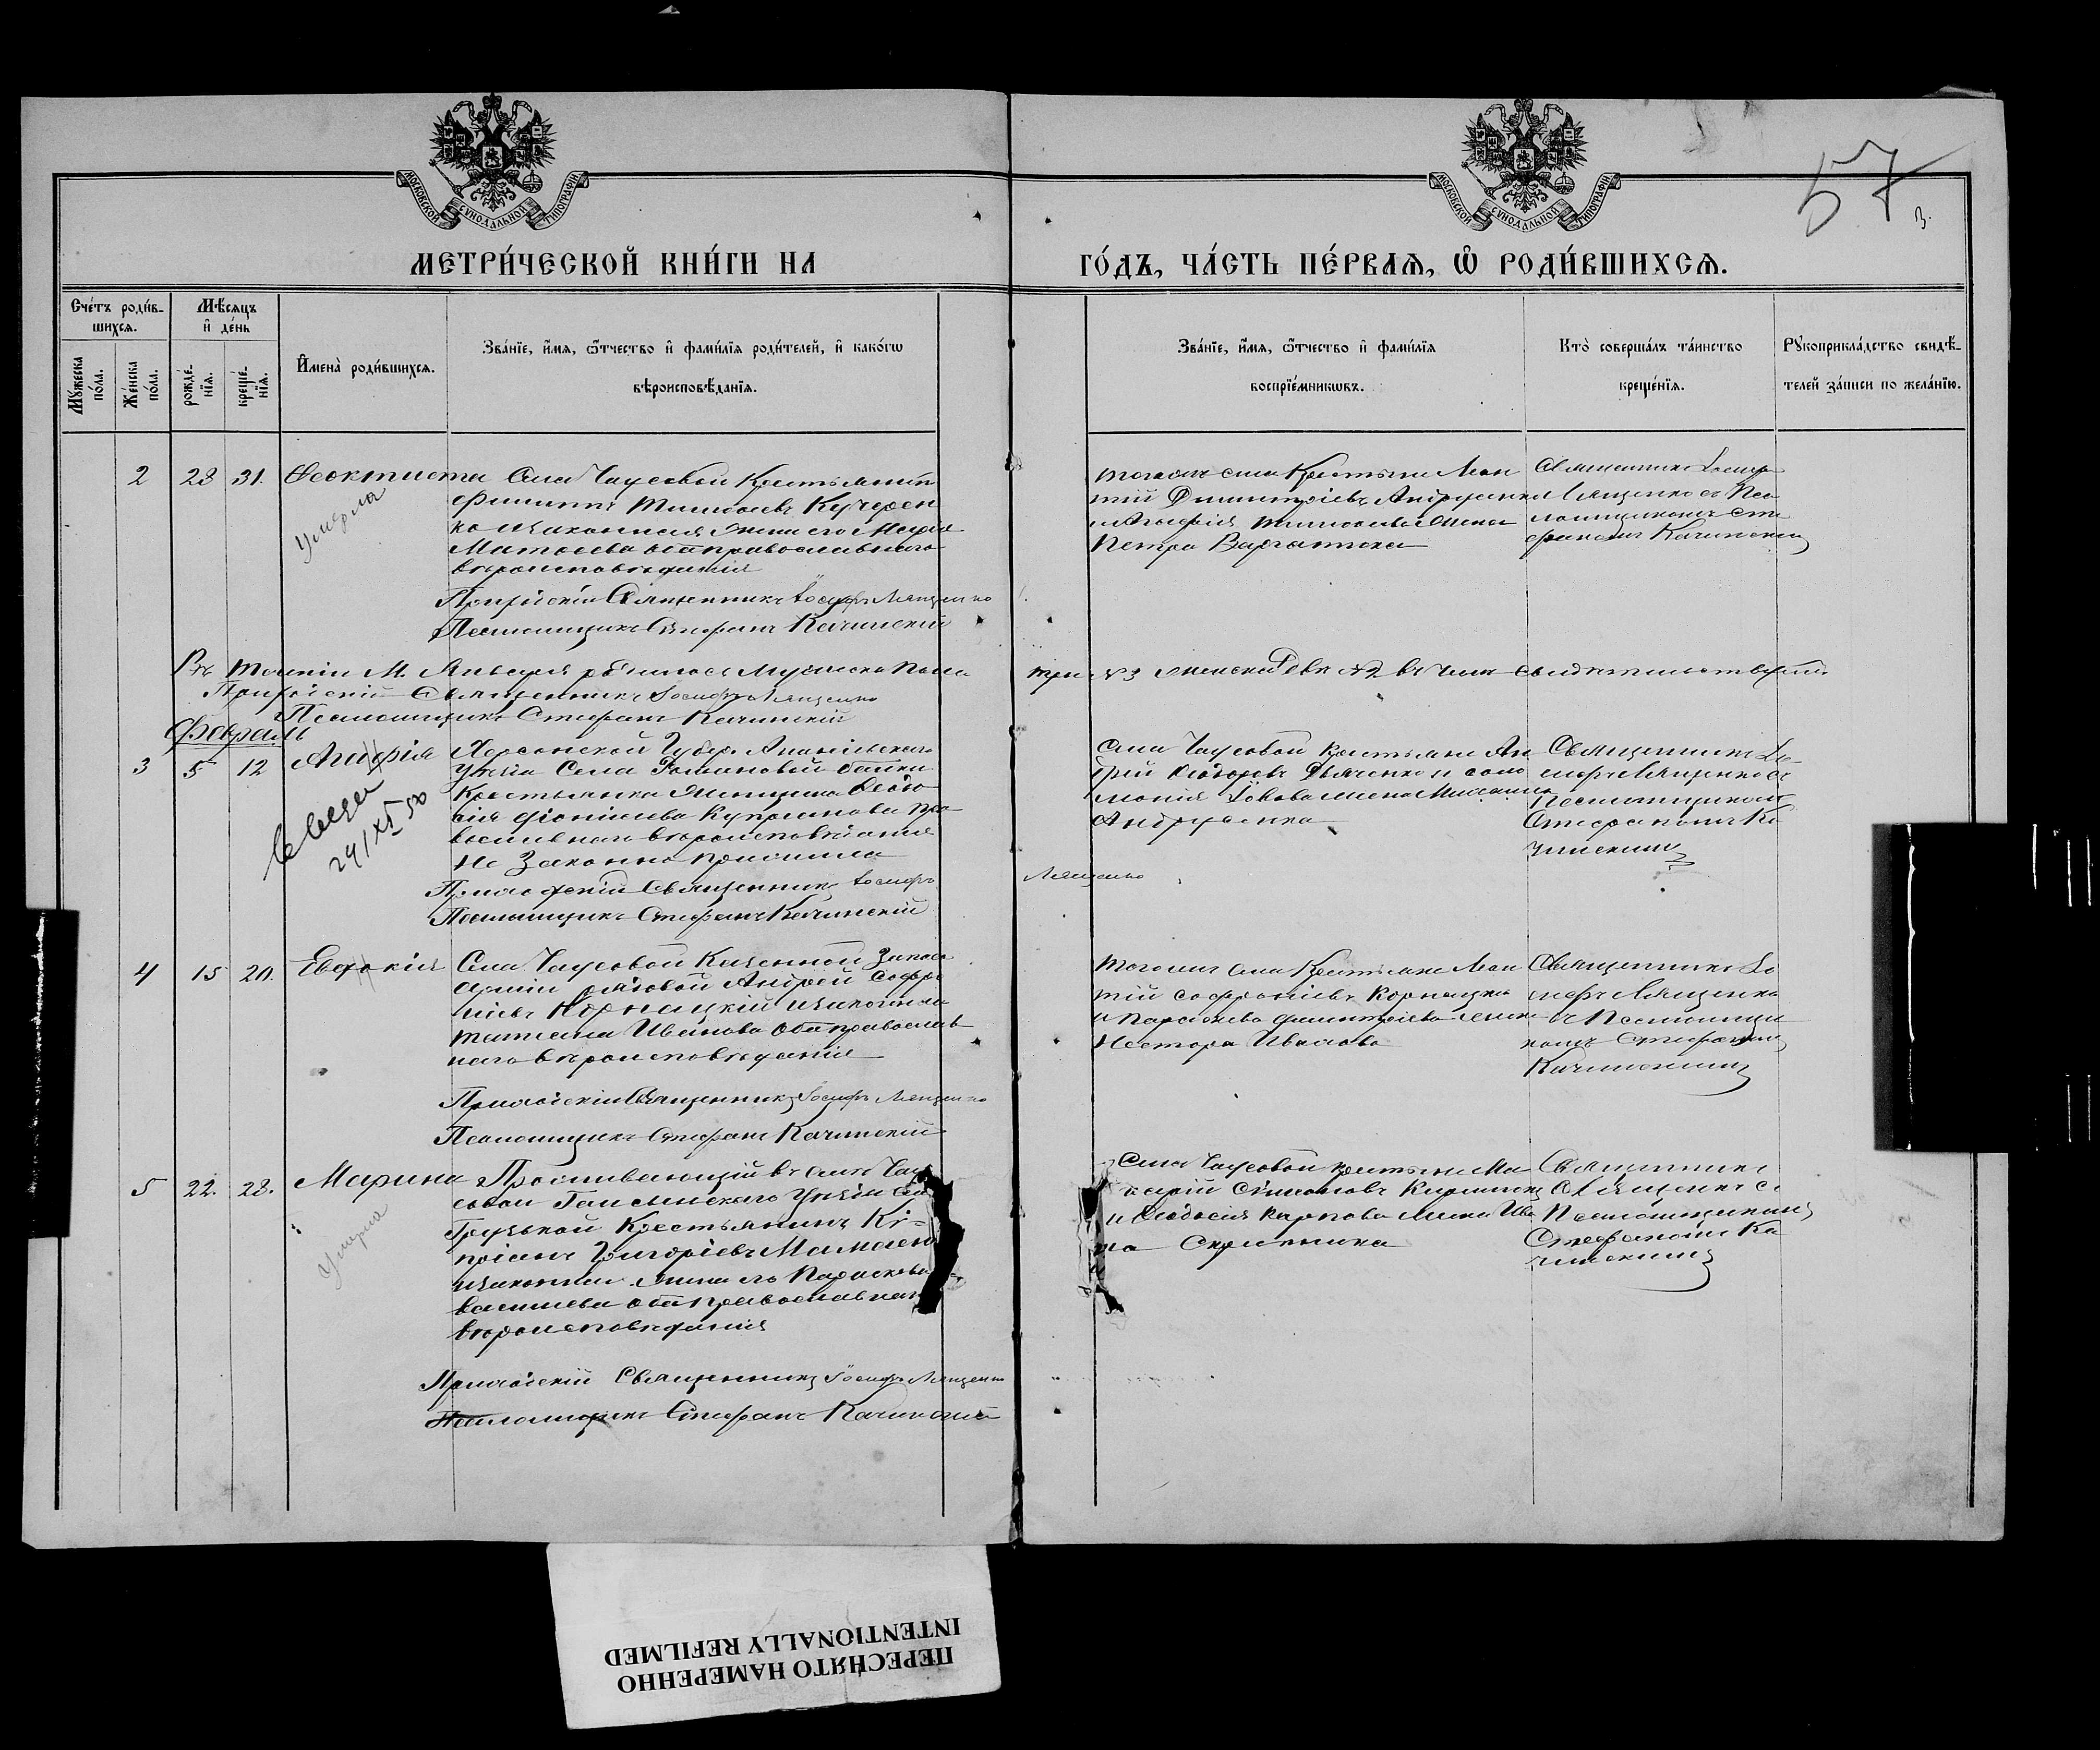 МОСКОВСКОЙ СУНОДАЛЬНОЙ ТИПОГРАФІИ
МОСКОВСКОЙ СУНОДАЛЬНОЙ ТИПОГРАФІИ
57
3.
МЕТРИ́ЧЕСКОЙ КНИ́ГИ НА
ГО́ДЪ, ЧА́СТЬ ПЕ́РВАѦ, Ѡ҆ РОДИ́ВШИХСѦ.
Сче́тъ роди́в-
шихсѧ.
Мꙋ́жеска
по́ла.
Же́нска
по́ла.
Мѣ́сѧцъ
и҆ де́нь
рожде́-
нїѧ.
креще́-
нїѧ.
И҆мена̀ роди́вшихсѧ.
Зва́нїе, и҆́мѧ, ѻ҆́тчество и҆ фами́лїѧ роди́телей, и҆ како́гѡ
вѣроисповѣ́данїѧ.
Зва́нїе, и҆́мѧ, ѻ҆́тчество и҆ фами́лїѧ
воспрїе́мникѡвъ.
Кто̀ соверша́лъ та́инство
креще́нїѧ.
Рꙋкоприкла́дство свидѣ́-
телей за́писи по жела́нїю.
2 28 31. Феоктиста
Умерла
Села Чаусовой Крестьянинъ
Филиппъ Тимофеевъ Кучерен
ко и законная жена его Мария
Матфеева оба православнаго
вероисповеданія
Приходскій Священникъ Іосифъ Лященко
Псаломщикъ Стефанъ Качинскій
тогоже села Крестьяне Леон
тій Димитріевъ Андрусенко
и Агафія Тимофеева жена
Петра
Священникъ Іосиф
Лященко съ Пса
ломщикомъ Сте
фаномъ Качинским
Въ теченіи М. Января родилось Мужеска Пола
три №3 женска две №2 въ чем свидетельствуем.
Приходскій Священникъ Іосифъ Лященко
Псаломщикъ Стефанъ Качинскій
Февраль
3 5 12 Агафія
24/XI 50
Херсонской Губер. Ананьевскаго
Уезда Села Романовой балки
Крестьянка женщина Феодо
сія Діонисиева Куприянова пра
вославнаго вероисповеданія
Не Законно
Приходскій Священникъ Іосифъ
Лященко
Псаломщикъ Стефанъ Качинскій
Села Чаусовой Крестьяне Ан
дрій Феодоровъ Дьяченко и Соло
монія Іовова жена Михаила
Андрусенка
Священникъ Іо
сифъ Лященко съ
Псаломщикомъ
Стефаномъ Ка
чинскимъ
4 15 20. Евдокія
Села Чаусовой Казенной Запаса
Арміи рядовой Андрей Софро
ніевъ Корнацкій и законная
Татиана Иванова оба православ
наго вероисповеданія
Приходскій Священникъ Іосифъ Лященко
Псаломщикъ Стефанъ Качинскій
тогоже села Крестьяне Леон
тій Софроніевъ Корнацкій
и Параскева Димитріева жена
Нестора Иванова
Священникъ Іо
сифъ Лященко
съ Псаломщи
комъ Стефаномъ
Качинскимъ
5 22. 28. Марина
Умерла
Проживающій въ селе Чау
совой Уезда села
Грузькой Крестьянинъ Кѵ-
пріанъ Григоріевъ
и законная жена его Параскева
Васильева оба православнаго
вероисповеданія
Приходскій Священникъ Іосифъ Лященко
Псаломщикъ Стефанъ Качинскій
Села Чаусовой крестьяне Ма
карій Симоновъ
и Феодосия Карпова жена Игна
та Скрипника
Священникъ
Лященко съ
Псаломщикомъ
Стефаномъ Ка
чинскимъ
ПЕРЕСНЯТО НАМЕРЕННО
INTENTIONALLY REFILMED